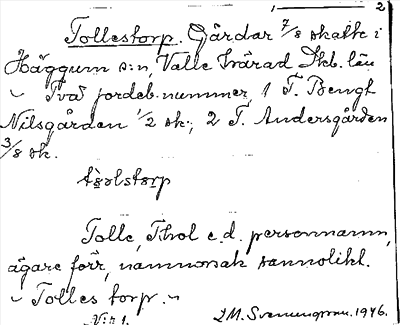 2
Tollestorp. Gårdar 7/8 skatte i
Häggum s:n, Valle härad Skb. län
~ Två jordeb. nummer, 1 T. Bengt
Nilsgården 1/2 sk.; 2 T. Andersgården
3/8 sk.
Tolle, Thol e.d. personnamn,
ägare förr, namnorsak sannolikt.
~ Tolles torp. ~
J M. Svenungsson. 1946.